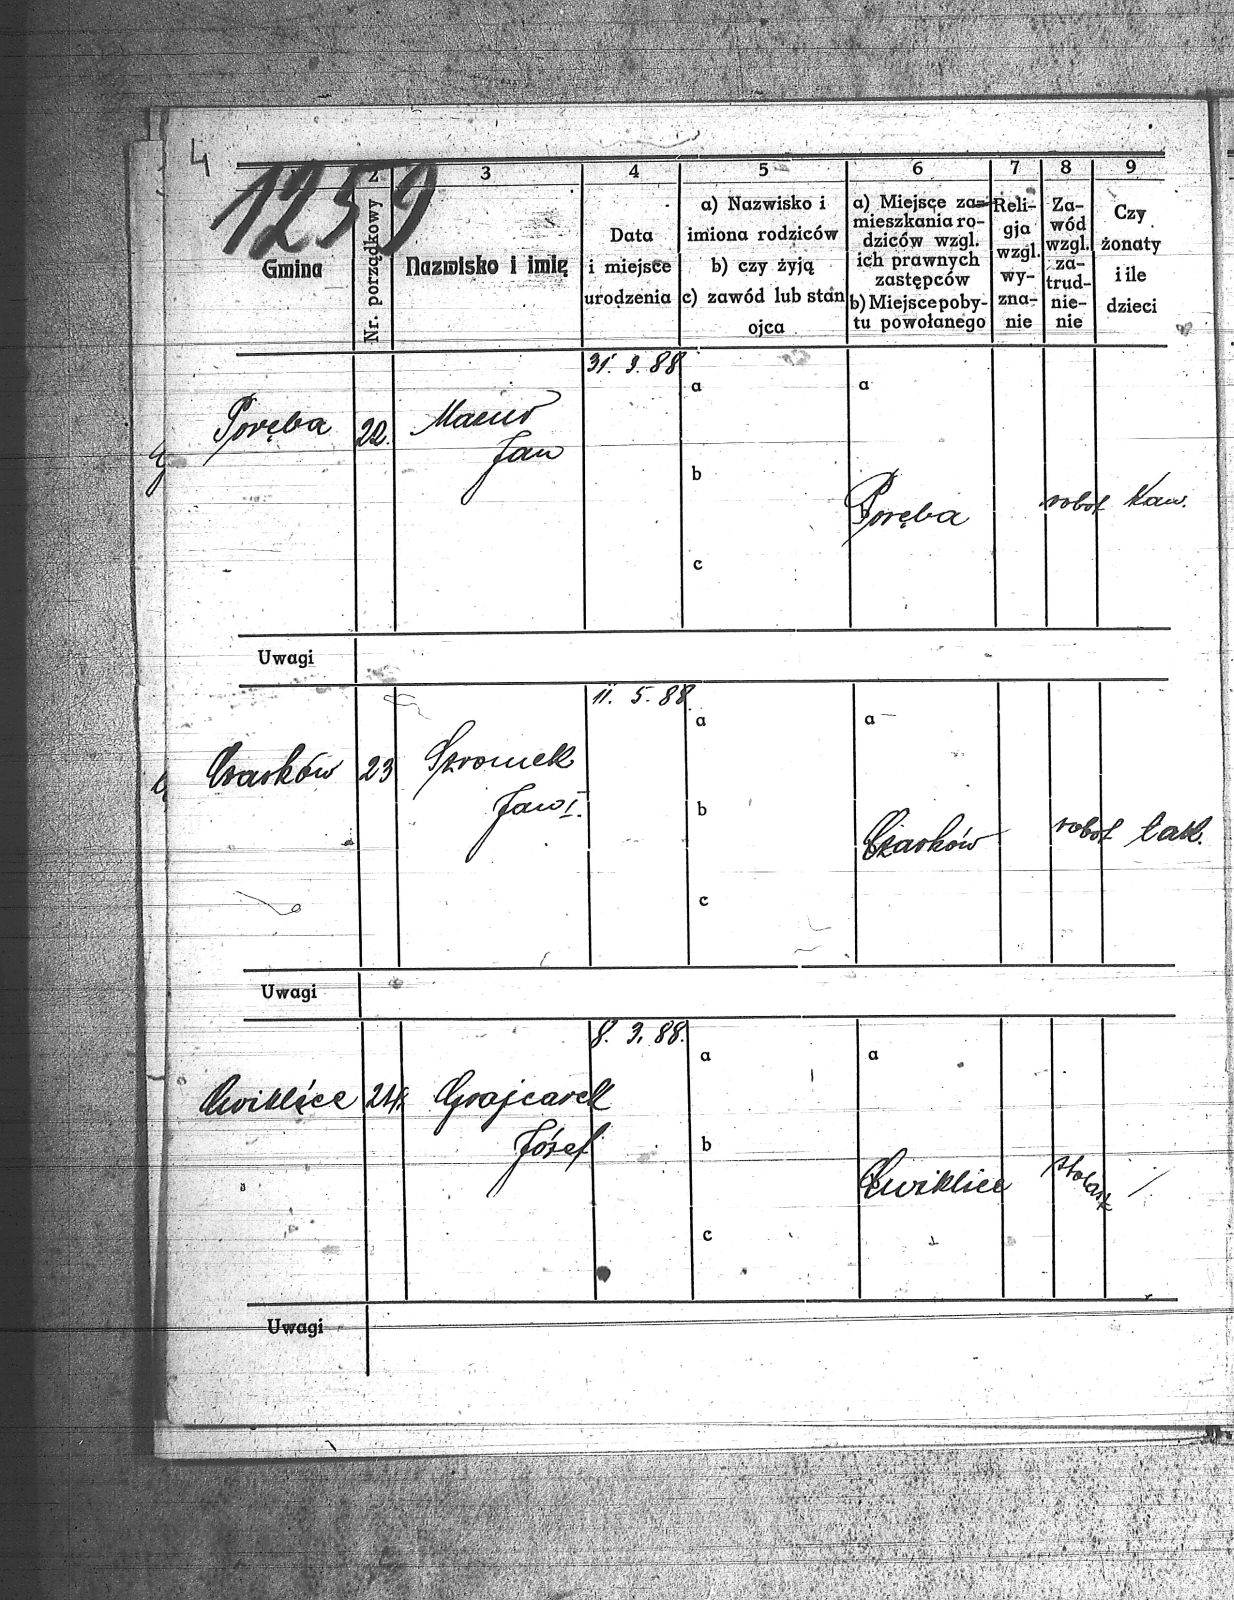 4
1259
2
3
4
5
6
7
8
9
Gmina
Nr. porządkowy
Nazwisko i imię
Data
i miejsce
urodzenia
a) Nazwisko i
imiona rodziców
b) czy żyją
c) zawód lub stan
ojca
a) Miejsce za-
mieszkania ro-
dziców wzgl.
ich prawnych
zastępców
b) Miejsce poby-
tu powołanego
Reli-
gja
wzgl.
wy-
zna-
nie
Za-
wód
wzgl.
za-
trud-
nie-
nie
Czy
żonaty
i ile
dzieci
31. 3. 88
a
a
Poręba
22.
Jan
b
b
Poręba
robot
Kaw.
c
Uwagi
11. 5. 88
a
a
Czarków
23
Szromek
Jan I.
b
b
Czarków
robot
tak.
c
Uwagi
8. 3. 88.
a
a
Cwiklice
24.
Grajcarek
Józef
b
b
Cwiklice
stolarz
/
c
Uwagi